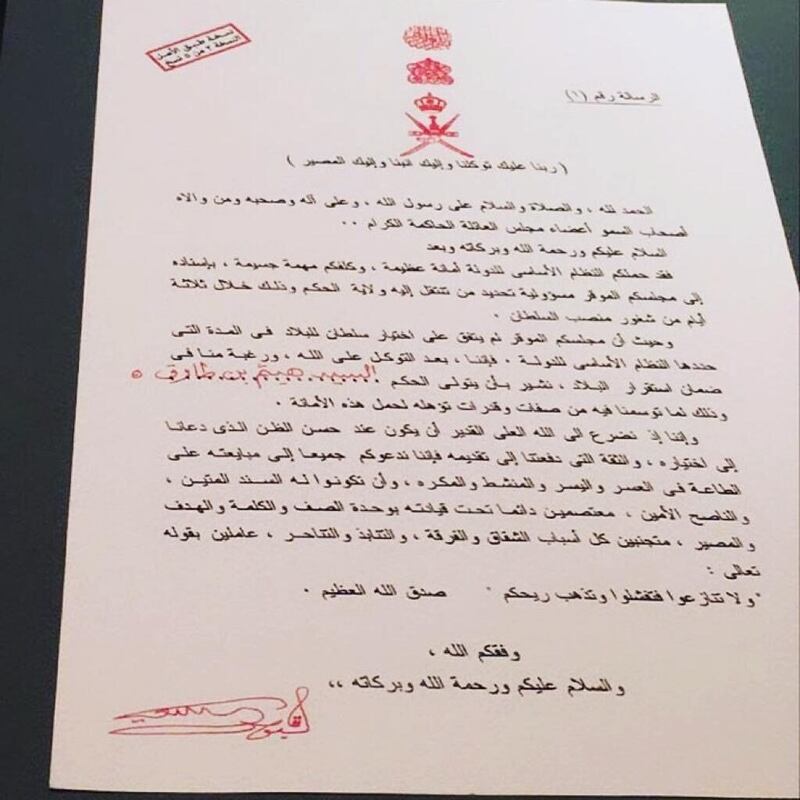 نسخة طبق الأصل
النسخة ٢ من ٥ نسخ
الرسالة رقم (١)
( ربنا عليك توكلنا وإليك أنبنا وإليك المصير )
الحمد لله ، والصلاة والسلام على رسول الله ، وعلى آله وصحبه ومن والاه
أصحاب السمو أعضاء مجلس العائلة الحاكمة الكرام ٠٠
السلام عليكم ورحمة الله وبركاته وبعد
فقد حملكم النظام الأساسى للدولة أمانة عظيمة ، وكلفكم مهمة جسيمة ، بإسناده
إلى مجلسكم الموقر مسؤولية تحديد من تنتقل إليه ولاية الحكم وذلك خلال ثلاثة
أيام من شغور منصب السلطان ٠
وحيث أن مجلسكم الموقر لم يتفق على اختيار سلطان للبلاد فى المدة التى
حددها النظام الأساسى للدولة ٠ فإننا ، بعد التوكل على الله ، ورغبة منا فى
ضمان استقرار البلاد ، نشير بأن يتولى الحكم السيد هيثم بن طارق ٥
وذلك لما توسمنا فيه من صفات وقدرات تؤهله لحمل هذه الأمانة ٠
وإننا إذ نضرع الى الله العلى القدير أن يكون عند حسن الظن الذى دعانا
إلى اختياره ، والثقة التى دفعتنا إلى تقديمه فإننا ندعوكم جميعا إلى مبايعته على
الطاعة فى العسر واليسر والمنشط والمكره ، وأن تكونوا له السند المتين ،
والناصح الأمين ، معتصمين دائما تحت قيادته بوحدة الصف والكلمة والهدف
والمصير ، متجنبين كل أسباب الشقاق والفرقة ، والتنابذ والتناحر ، عاملين بقوله
تعالى :
"ولا تنازعوا فتفشلوا وتذهب ريحكم " صدق الله العظيم ٠
وفقكم الله ،
والسلام عليكم ورحمة الله وبركاته ،،